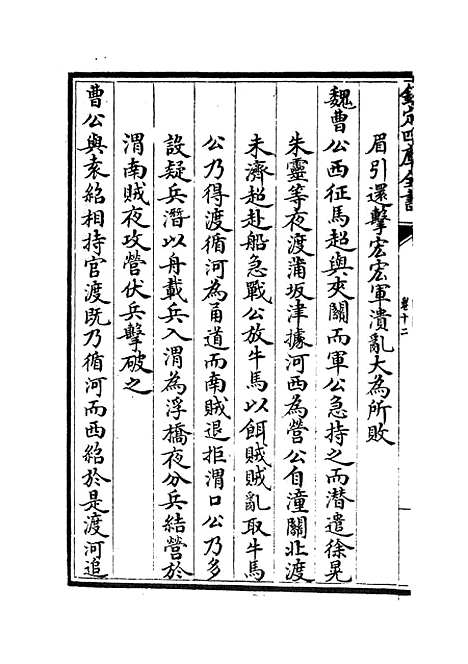 欽定四庫全書
卷十二
眉引還擊宏宏軍潰亂大為所敗
魏曹公西征馬超與夾關而軍公急持之而潛遣徐晃
朱靈等夜渡蒲坂津據河西為營公自潼關北渡
未濟超赴船急戰公放牛馬以餌賊賊亂取牛馬
公乃得渡循河為甬道而南賊退拒渭口公乃多
設疑兵潛以舟載兵入渭為浮橋夜分兵結營於
渭南賊夜攻營伏兵擊破之
曹公與袁紹相持官渡既乃循河而西紹於是渡河追